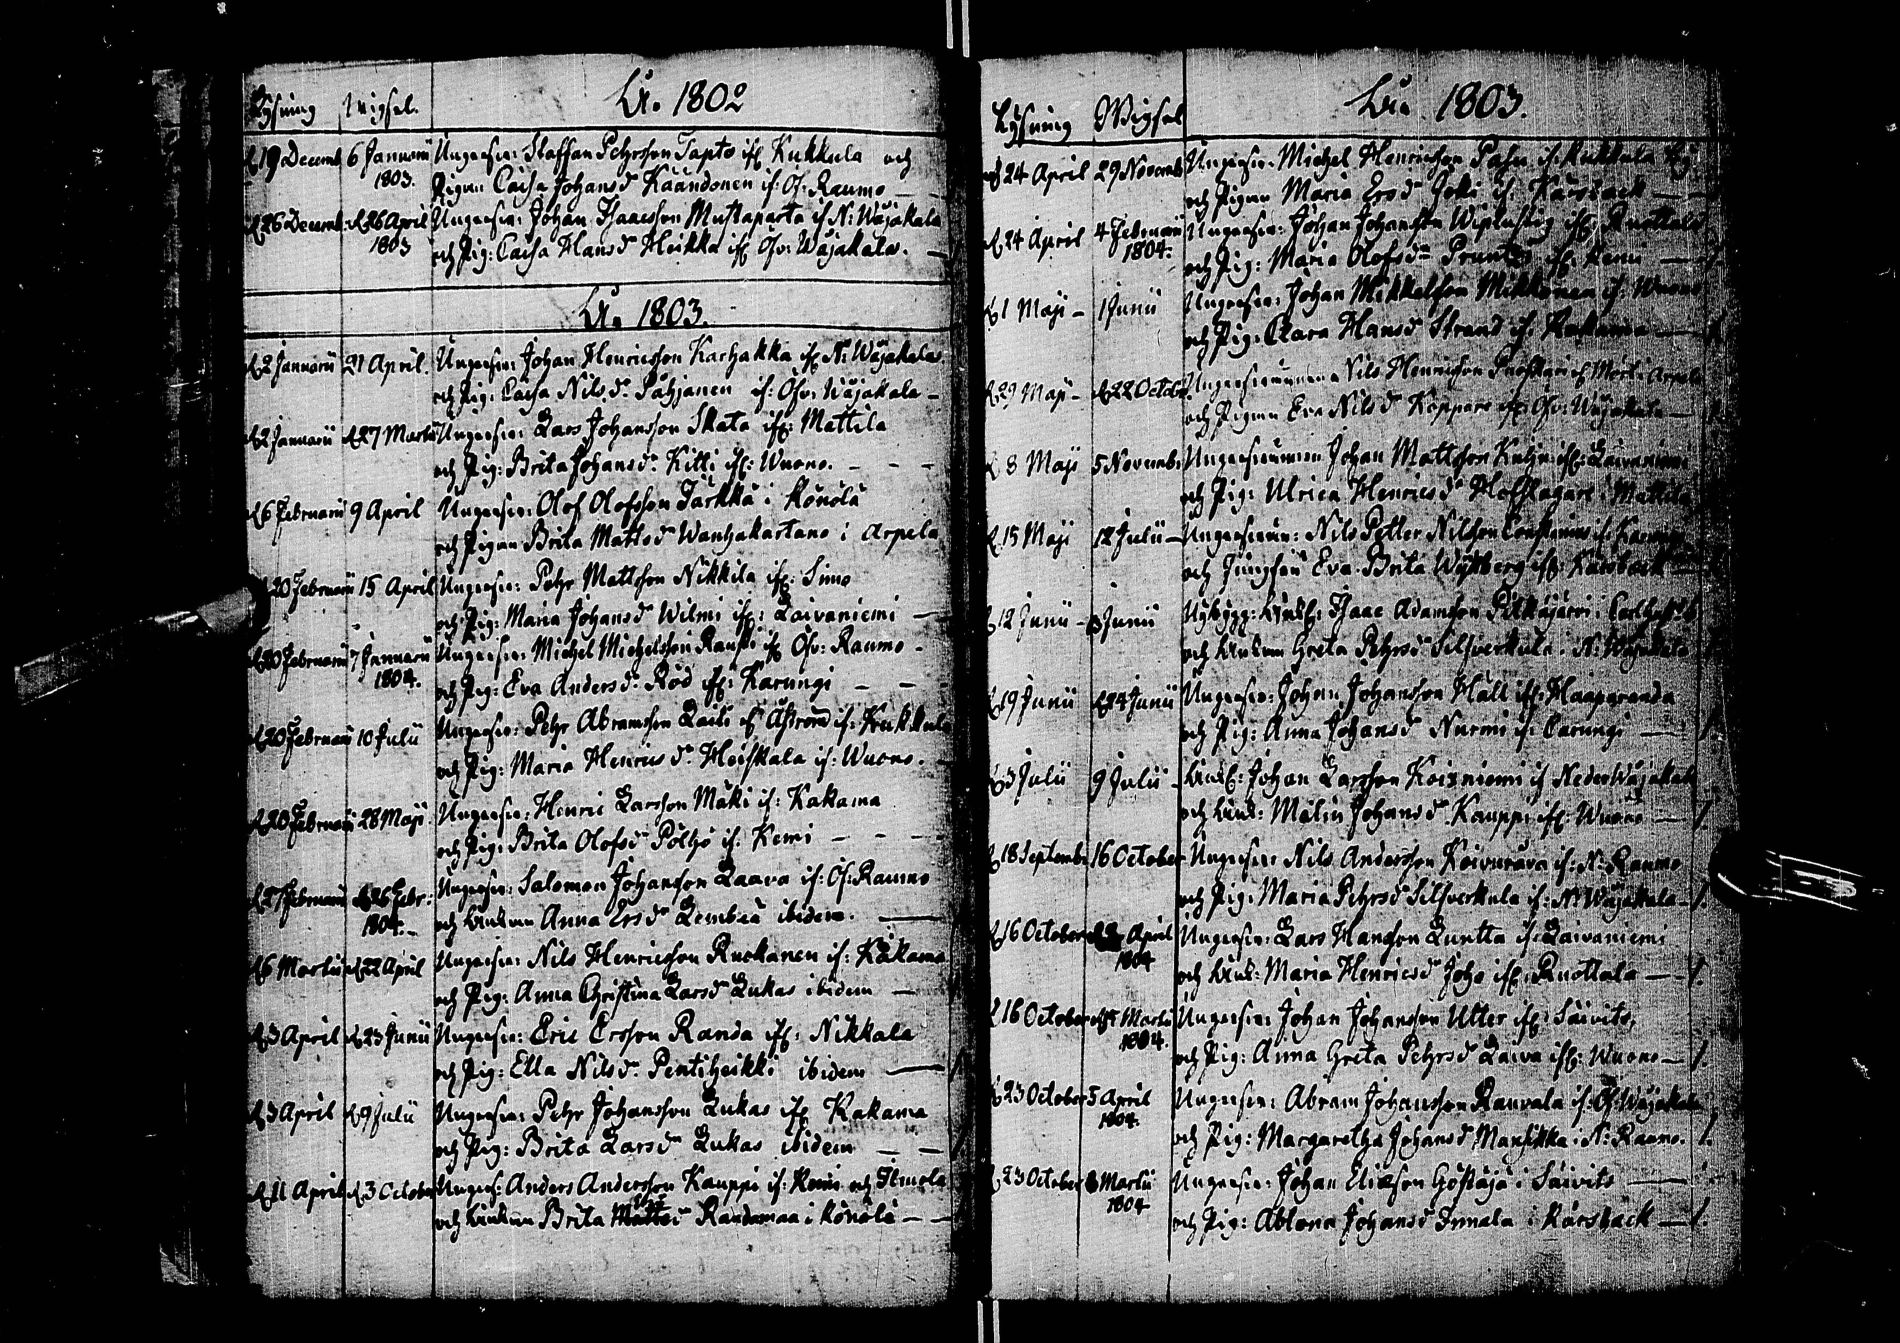 Lysning Wigsel. År 1802
d. 19 Decemb. 6 Januarii Ungersv: Staffan Pehrsson Tapto ifr. Kukkula och
1803. Pigan Caisa Johansd:r Käändonen if: Öf: Raumo
d. 26 Decemb. d. 26 April Ungersv: Johan Isaacsson Mustaparta if N: Wojakala
1803 och Pig: Caisa Hansd:r Heikka ifr. Öfv: Wojakala.
År 1803.
d. 2 Januarii 21 April. Ungersv: Johan Henricsson Karhakka ifr. N: Wojakala
och Pig: Caisa Nilsd:r if: Öfv: Wojakala
d. 2 Januarii d. 27 Martii Ungersv: Lars Johansson Skata ifr: Mattila
och Pig: Brita Johansd:r Kitti ifr: Wuono.
d. 6 Februarii 9 April Ungersv: Olof Olofsson Jarkkä i Könölä
och Pigan Brita Mattsd:r Wanhakartano i Arpela
d. 20 Februarii 15 April Ungersv: Pehr Mattsson Nikkila ifr: Simo
och Pig: Maria Johansd:r Wilmi ifr: Laivaniemi
d. 20 Februarii 7 Januarii Ungersv: Michel Michelsson ifr Öfv: Raumo
1804. och Pig: Eva Andersd:r Röd ifr: Karungi
d. 20 Februarii 10 Julii Ungersv: Pehr Abramsson if: Kukkula
och Pig: Maria Henricsd:r Heiskala if: Wuono.
d. 20 Februarii 28 Maji Ungersv: Henric Larsson Mäki if: Kakama
och Pig: Brita Olofsd:r Pölhö if: Kemi
d. 27 Februarii d. 26 Febr: Ungersv: Salomon Johansson Laava if: Öf: Raumo
1804. och Enkan Anna Ersd:r ibidem.
d. 6 Martii d. 22 April Ungersv: Nils Henricsson Ruokanen if: Kakama
och Pig: Anna Christina Larsd:r Lukas ibidem
d. 3 April d. 23 Junii Ungersv: Eric Ersson Randa ifr: Nikkala
och Pig: Ella Nilsd:r Pentiheikki ibidem
d. 3 April d. 9 Julii Ungersv: Pehr Johansson Lukas ifr Kakama
och Pig: Brita Larsd:r Lukas ibidem
d. 11 April d. 3 October Ungersv: Anders Andersson Kauppi if: Kemi och
och Enkan Brita Randamaa i Könölä
Lysning Wigsel År 1803.
d. 24 April 29 Novemb. Ungersv: Michel Henricsson Pasu if. Kukkula By
och Pigan Maria Ersd:r Joki if: Karsbäck
d. 24 April 4 Februarii Ungersv: Johan Johansson ifr: Ruottala
1804. och Pig: Maria Olofsd:r ifr: Kemi
d. 1 Maji 1 Junii Ungersv: Johan Mikkelsson Mikkonen if: Wuono
och Pig: Clara Hansd:r Strand if: Kakama
d. 29 Maji d. 22 Octob. Ungersvennen Nils Henricsson Arpela
och Pigan Eva Nilsd:r Koppare ifr: Öfv: Wojakala
d. 8 Maji 5 Novemb. Ungersvennen Johan Mattsson ifr: Laivaniemi
och Pig: Ulrica Henricsd:r i Mattila
d. 15 Maji 12 Julii Ungersvenn: Nils Petter Nilsson if Karungi
och Jungfru Eva Brita Wykberg ifr: Karsbäck
d. 12 Junii Junii Nybygg: Enkl: Isaac Adamsson Pitkäjärvi i
och Enkan Greta Pehrsd:r Silfverkula i N: Wojakala
d. 19 Junii d. 24 Junii Ungersv: Johan Johansson Häll ifr: Haaparanda
och Pig: Anna Johansd:r Nurmi if: Carungi
d. 3 Julii 9 Julii Enkl: Johan Larsson Koivuniemi if Neder Wojakala
och Enk: Malin Johansd:r Kauppi ifr: Wuono
d. 18 Septemb. 16 October Ungersv: Nils Andersson Koivurova if: N: Raumo
och Pig: Maria Pehrsd:r Silfverkula if: N: Wojakala
d. 16 October April Ungersv: Lars Hansson Luntta if: Laivaniemi
1804 och Enk: Maria Henricsd:r Joho ifr: Ruottala
d. 16 October Martii Ungersv: Johan Johansson Utter ifr: Säivits,
1804. och Pig: Anna Greta Pehrsd:r Laiva ifr: Wuono
d. 23 October 5 April Ungersv: Abram Johansson Rauvala if: Öf. Wojakala
1804. och Pig: Margaretha Johansd:r i N: Raumo.
d. 23 October Martii Ungersv: Johan Eliæson Göstajä i Säivits
1804 och Pig: Ablona Johansd:r Innala i Karsbäck